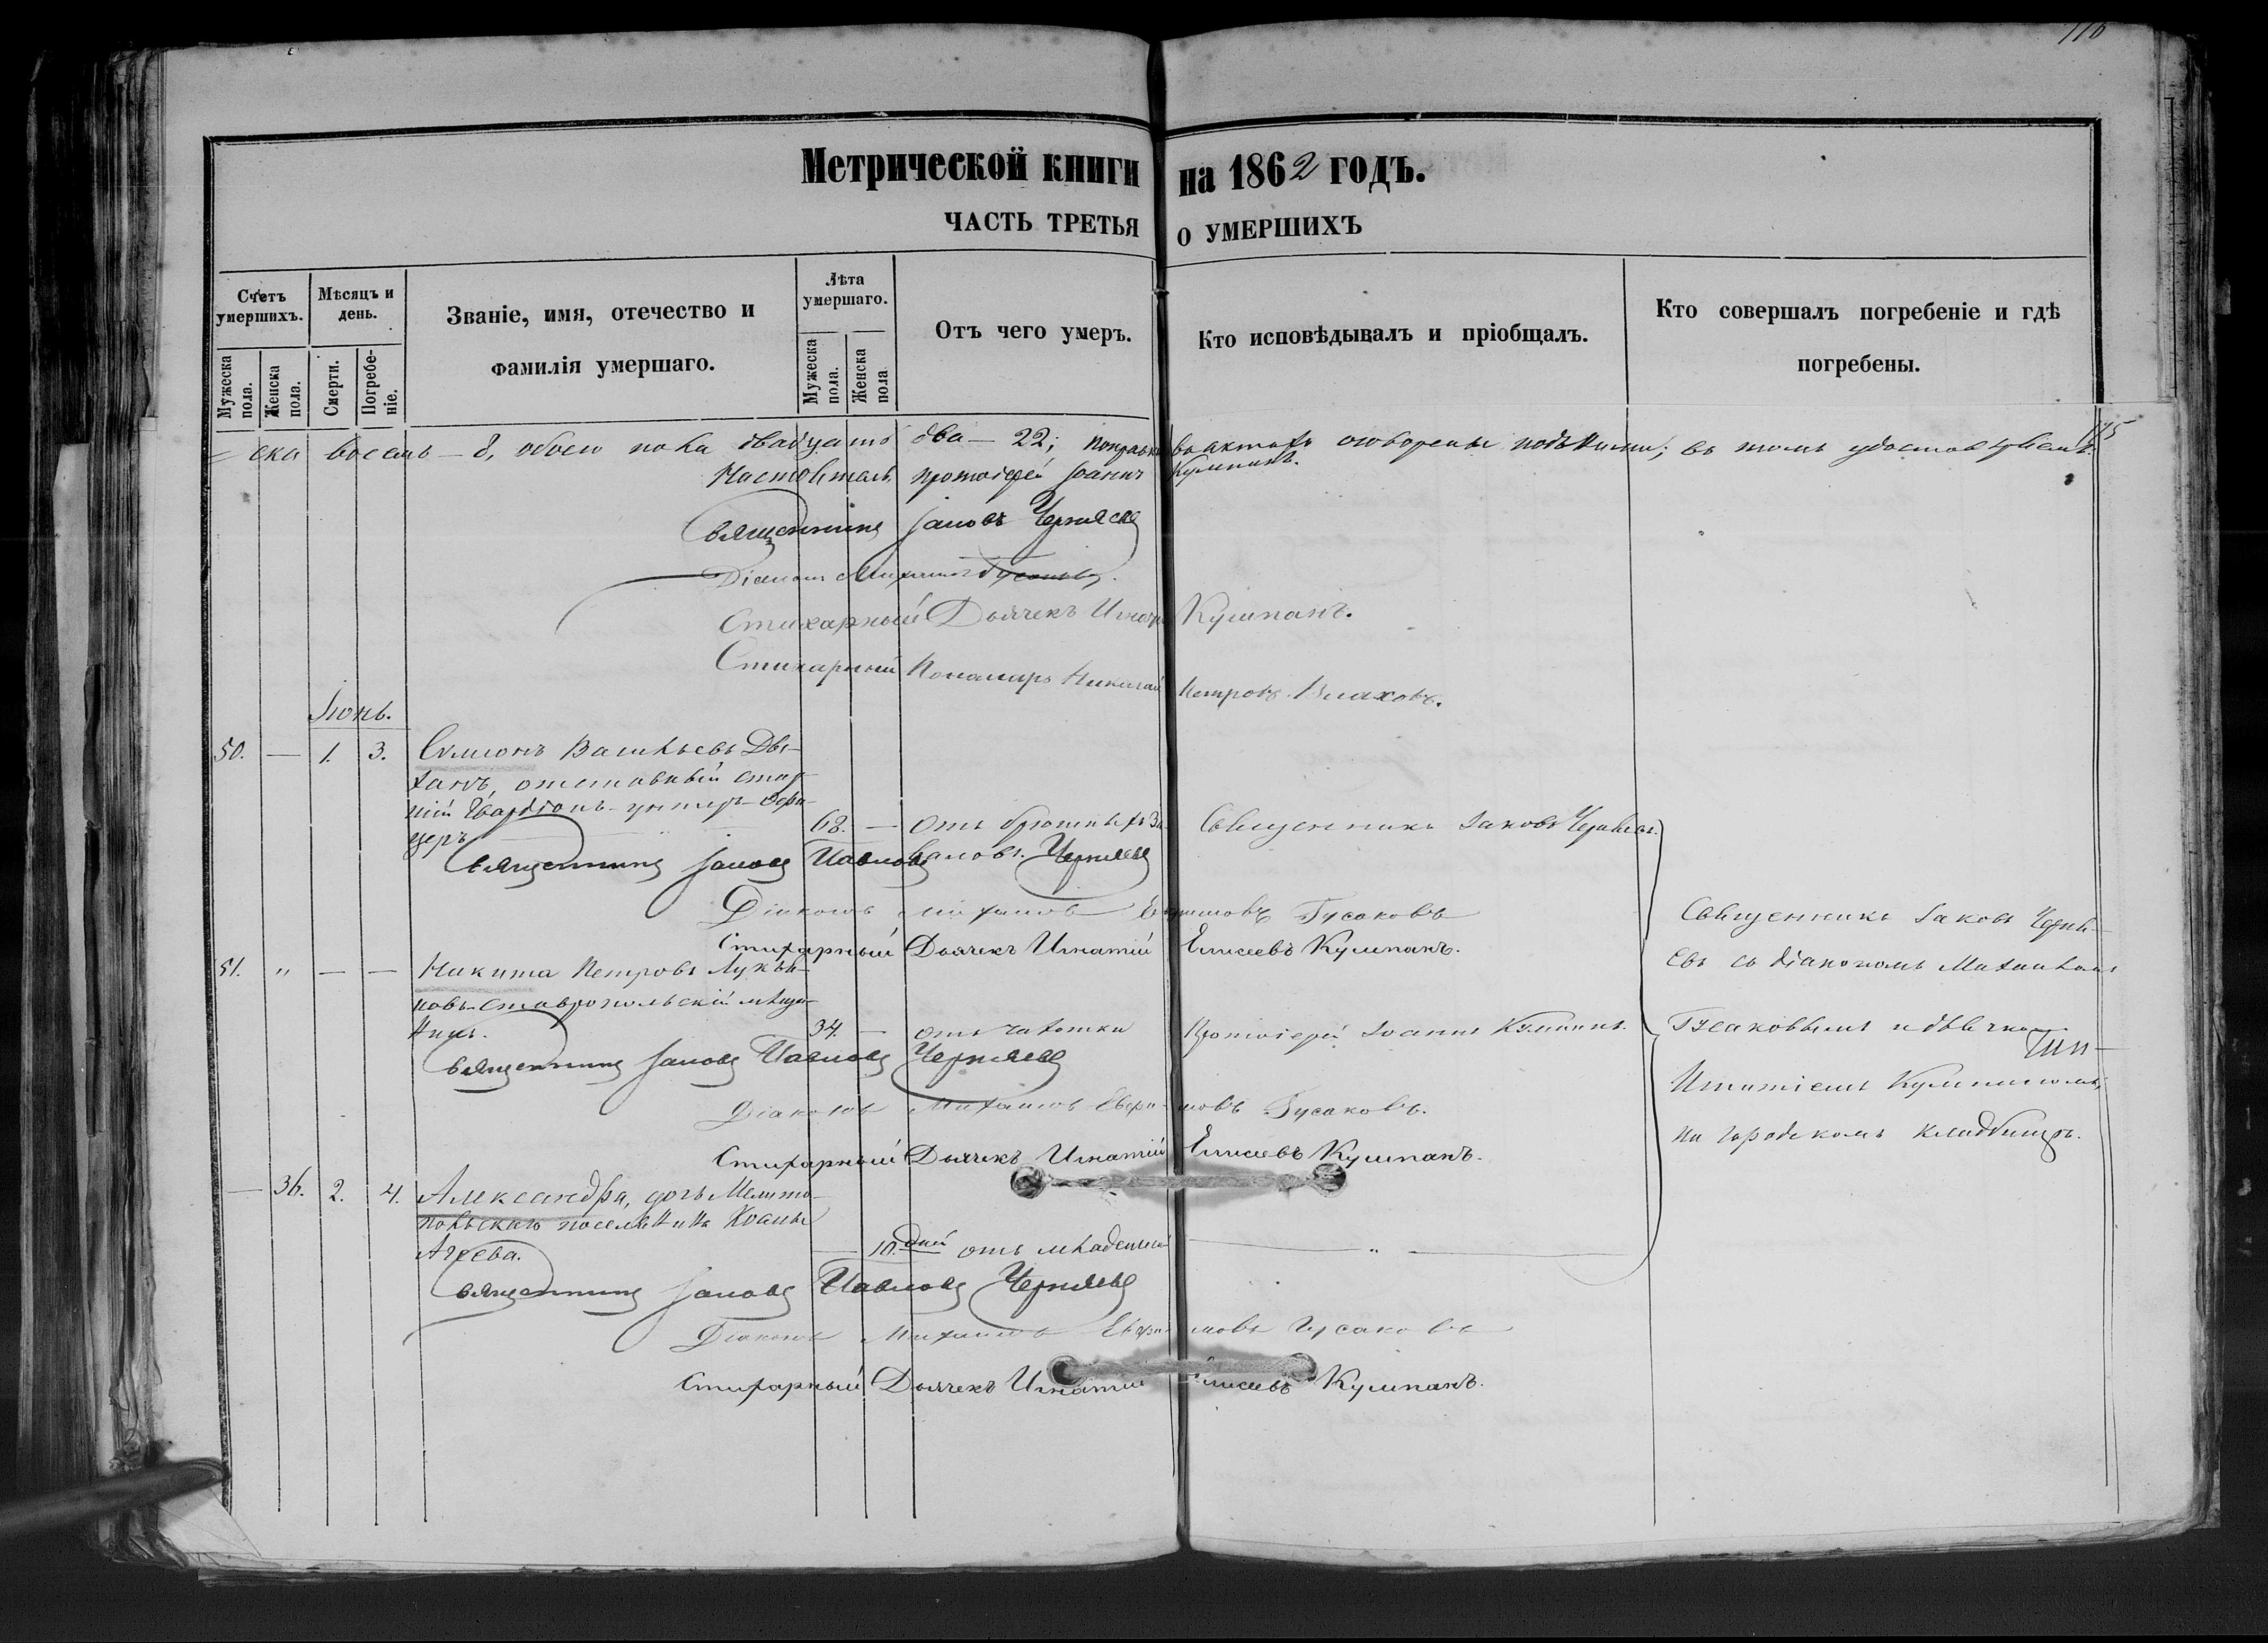 116
Метрической книги на 1862 годъ.
ЧАСТЬ ТРЕТЬЯ О УМЕРШИХЪ
Счетъ умершихъ.
Мѣсяцъ и день.
Званіе, имя, отечество и фамилія умершаго.
Лѣта умершаго.
Отъ чего умеръ.
Кто исповѣдывалъ и пріобщалъ.
Кто совершалъ погребеніе и гдѣ погребены.
Мужеска пола.
Женска пола.
Смерти.
Погребеніе.
Мужеска пола.
Женска пола
115
ска восемь — 8, обоего пола двадцать два — 22; поправки въ актахъ оговорены подъ ними; въ томъ удостовѣряемъ.
Настоятель протоіерей Іоаннъ Кумпанъ.
Священникъ Іаковъ Черняевъ
Діаконъ Михаилъ Гусаковъ.
Стихарный Дьячекъ Игнатій Кумпанъ.
Стихарный Пономарь Николай Петровъ Влаховъ.
Іюнь.
50. — 1. 3. Симіонъ Васильевъ
отставный стар-
шій унтеръ-офи-
церъ 68. — отъ
Священникъ Іаковъ Черняевъ.
Священникъ Іаковъ Павловъ Черняевъ
Діаконъ Михаилъ Евфимовъ Гусаковъ
Стихарный Дьячекъ Игнатій Елисеевъ Кумпанъ.
51. " — — Никита Петровъ Лукья-
новъ Ставропольскій мѣща-
нинъ. 34. — отъ чахотки Протоіерей Іоаннъ Кумпанъ.
Священникъ Іаковъ Павловъ Черняевъ
Діаконъ Михаилъ Евфимовъ Гусаковъ.
Стихарный Дьячекъ Игнатій Елисеевъ Кумпанъ.
Священникъ Іаковъ Черня-
евъ съ діакономъ Михаиломъ
Гусаковымъ и дьячкомъ
Игнатіемъ Кумпаномъ,
на городскомъ кладбищѣ.
— 36. 2. 4. Александра, дочь Мелито-
польскаго поселянина
Агѣева. — 10 дней отъ младенческой — " —
Священникъ Іаковъ Павловъ Черняевъ
Діаконъ Михаилъ Евфимовъ Гусаковъ
Стихарный Дьячекъ Игнатій Елисеевъ Кумпанъ.